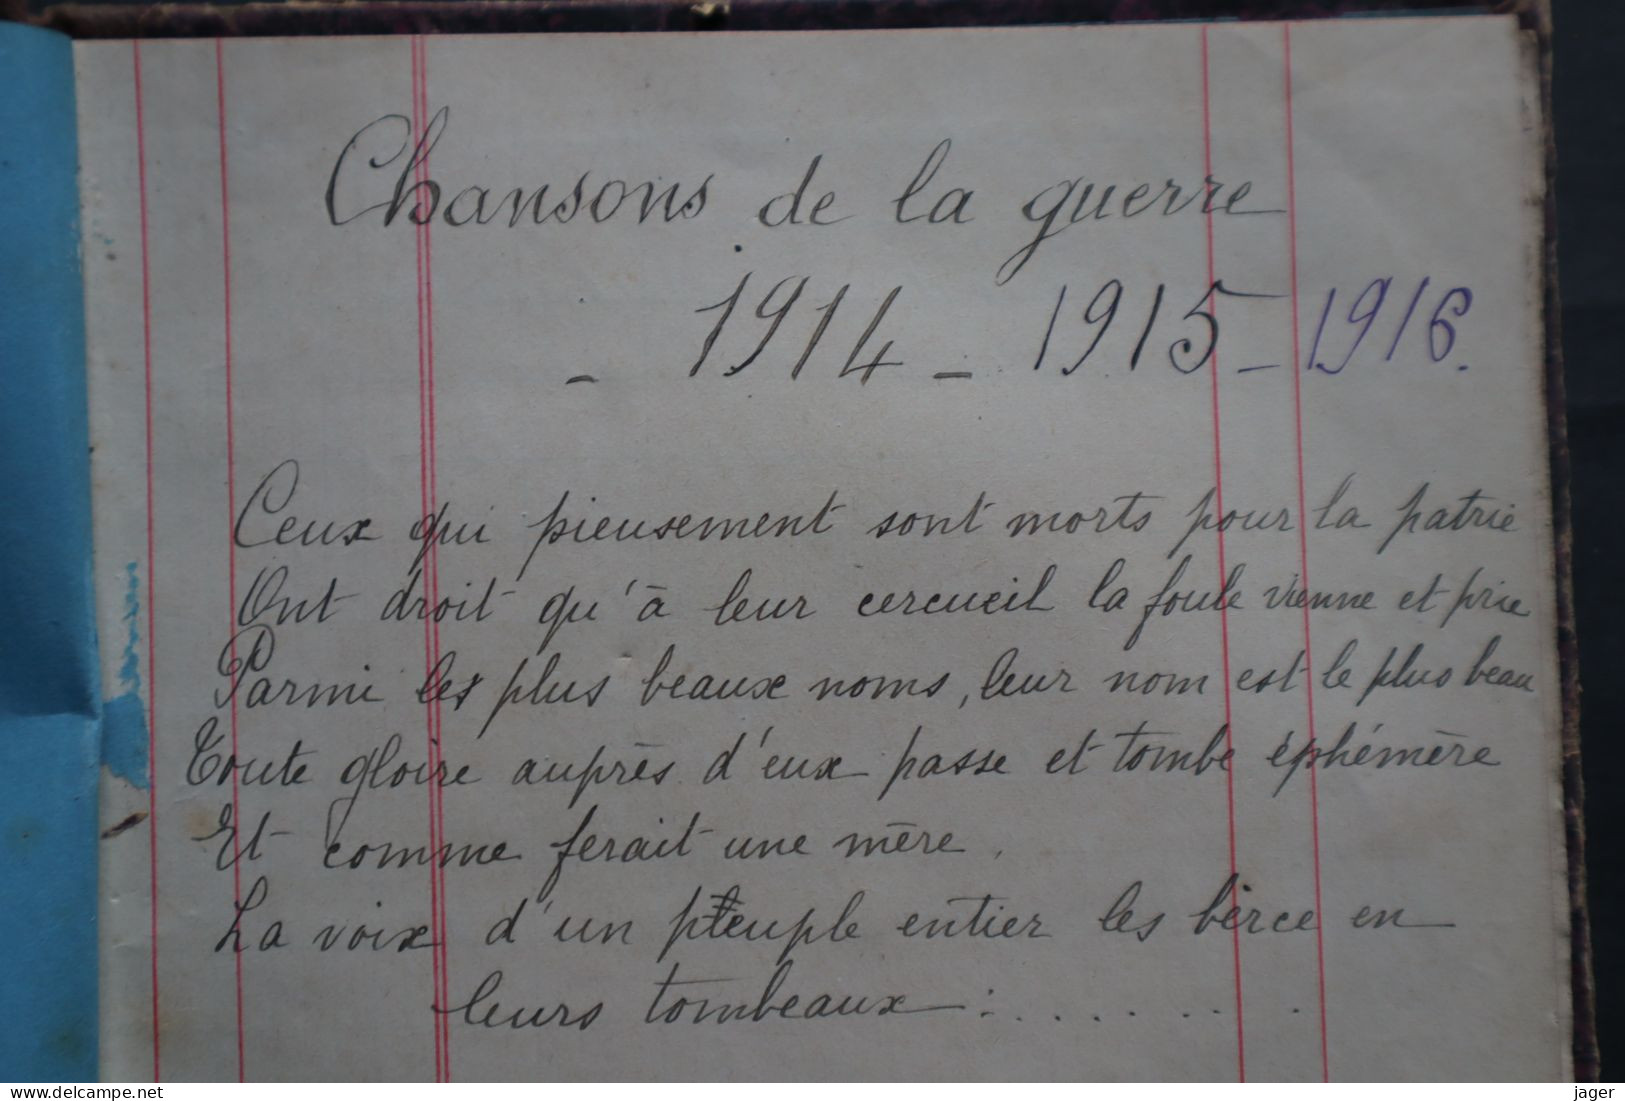 Chansons de la guerre
- 1914 - 1915 - 1916.
Ceux qui pieusement sont morts pour la patrie
Ont droit qu'à leur cercueil la foule vienne et prie
Parmi les plus beaux noms, leur nom est le plus beau
Toute gloire auprès d'eux passe et tombe éphémère
Et comme ferait une mère.
La voix d'un peuple entier les bèrce en
leurs tombeaux :.......
delcampe.net
jager